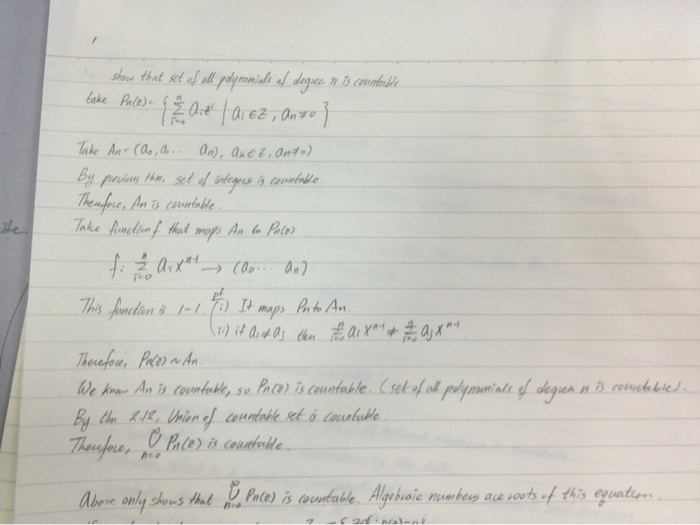 show that set of all polynomials of degree n is countable
take Pn(z) = { n Σ i=0 aiz^i | ai ∈ Z, an ≠ 0 }
Take An = (a0, a1 ... an), ak ∈ Z, an ≠ 0)
By previous thm, set of integers is countable.
Therefore, An is countable.
the
Take function f that maps An to Pn(z)
f: n Σ i=0 ai x^n-1 → (a0 ... an)
This function is 1-1 pf i) It maps Pn to An.
ii) if ai ≠ aj then n Σ i=0 ai x^n-1 ≠ n Σ i=0 aj x^n-1
Therefore, Pn(z) ~ An
We know An is countable, so Pn(z) is countable. (set of all polynomials of degree n is countable).
By thm 2.12, Union of countable set is countable
Therefore, ∪ n=0 Pn(z) is countable.
Above only shows that ∪ n=0 Pn(z) is countable. Algebraic numbers are roots of this equation.